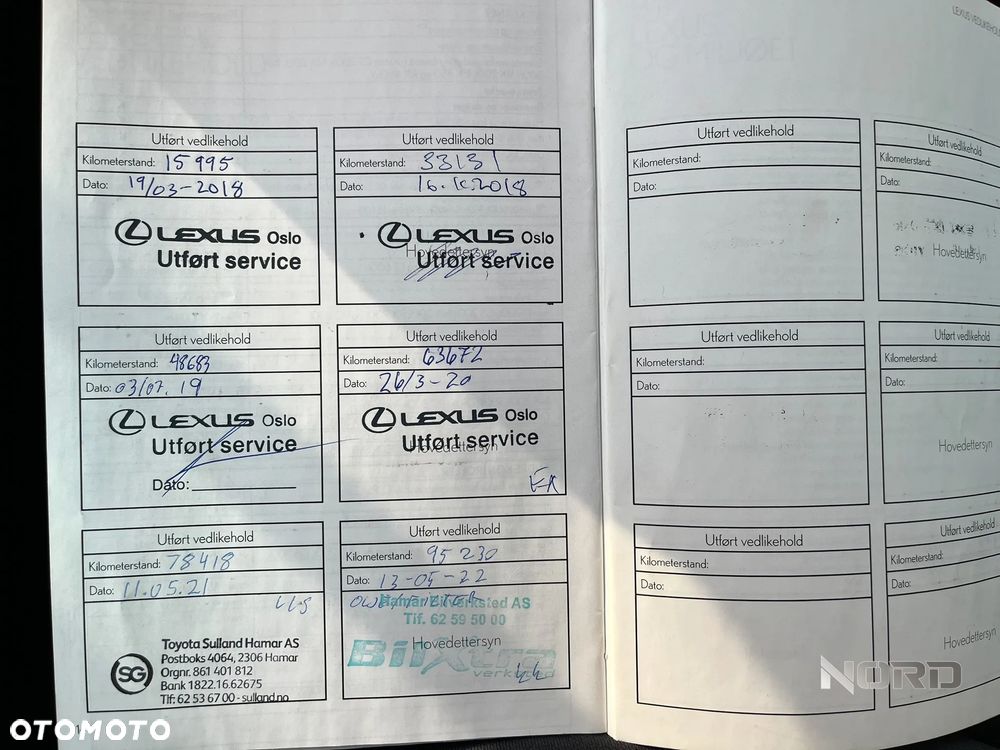 LEXUS VEDLIKEHOLD
Utført vedlikehold
Kilometerstand: 15 995
Dato: 19/03-2018
LEXUS Oslo
Utført service
Utført vedlikehold
Kilometerstand: 33131
Dato: 16.10.2018
LEXUS Oslo
Hovedettersyn
Utført service
Utført vedlikehold
Kilometerstand: 48683
Dato: 03/07.19
LEXUS Oslo
Utført service
Dato:
Utført vedlikehold
Kilometerstand: 63672
Dato: 26/3-20
LEXUS Oslo
Utført service
Hovedettersyn
Utført vedlikehold
Kilometerstand: 78418
Dato: 11.05.21
Toyota Sulland Hamar AS
Postboks 4064, 2306 Hamar
Orgnr. 861 401 812
Bank 1822.16.62675
Tlf: 62 53 67 00 - sulland.no
SG
Utført vedlikehold
Kilometerstand: 95 230
Dato: 13-05-22
Hamar Bilverksted AS
Tlf. 62 59 50 00
Hovedettersyn
BilXtra
verksted
Utført vedlikehold
Kilometerstand:
Dato:
Utført vedlikehold
Kilometerstand:
Dato:
Hovedettersyn
Utført vedlikehold
Kilometerstand:
Dato:
Utført vedlikehold
Kilometerstand:
Dato:
Hovedettersyn
Utført vedlikehold
Kilometerstand:
Dato:
Utført vedlikehold
Kilometerstand:
Dato:
Hovedettersyn
NORD
OTOMOTO